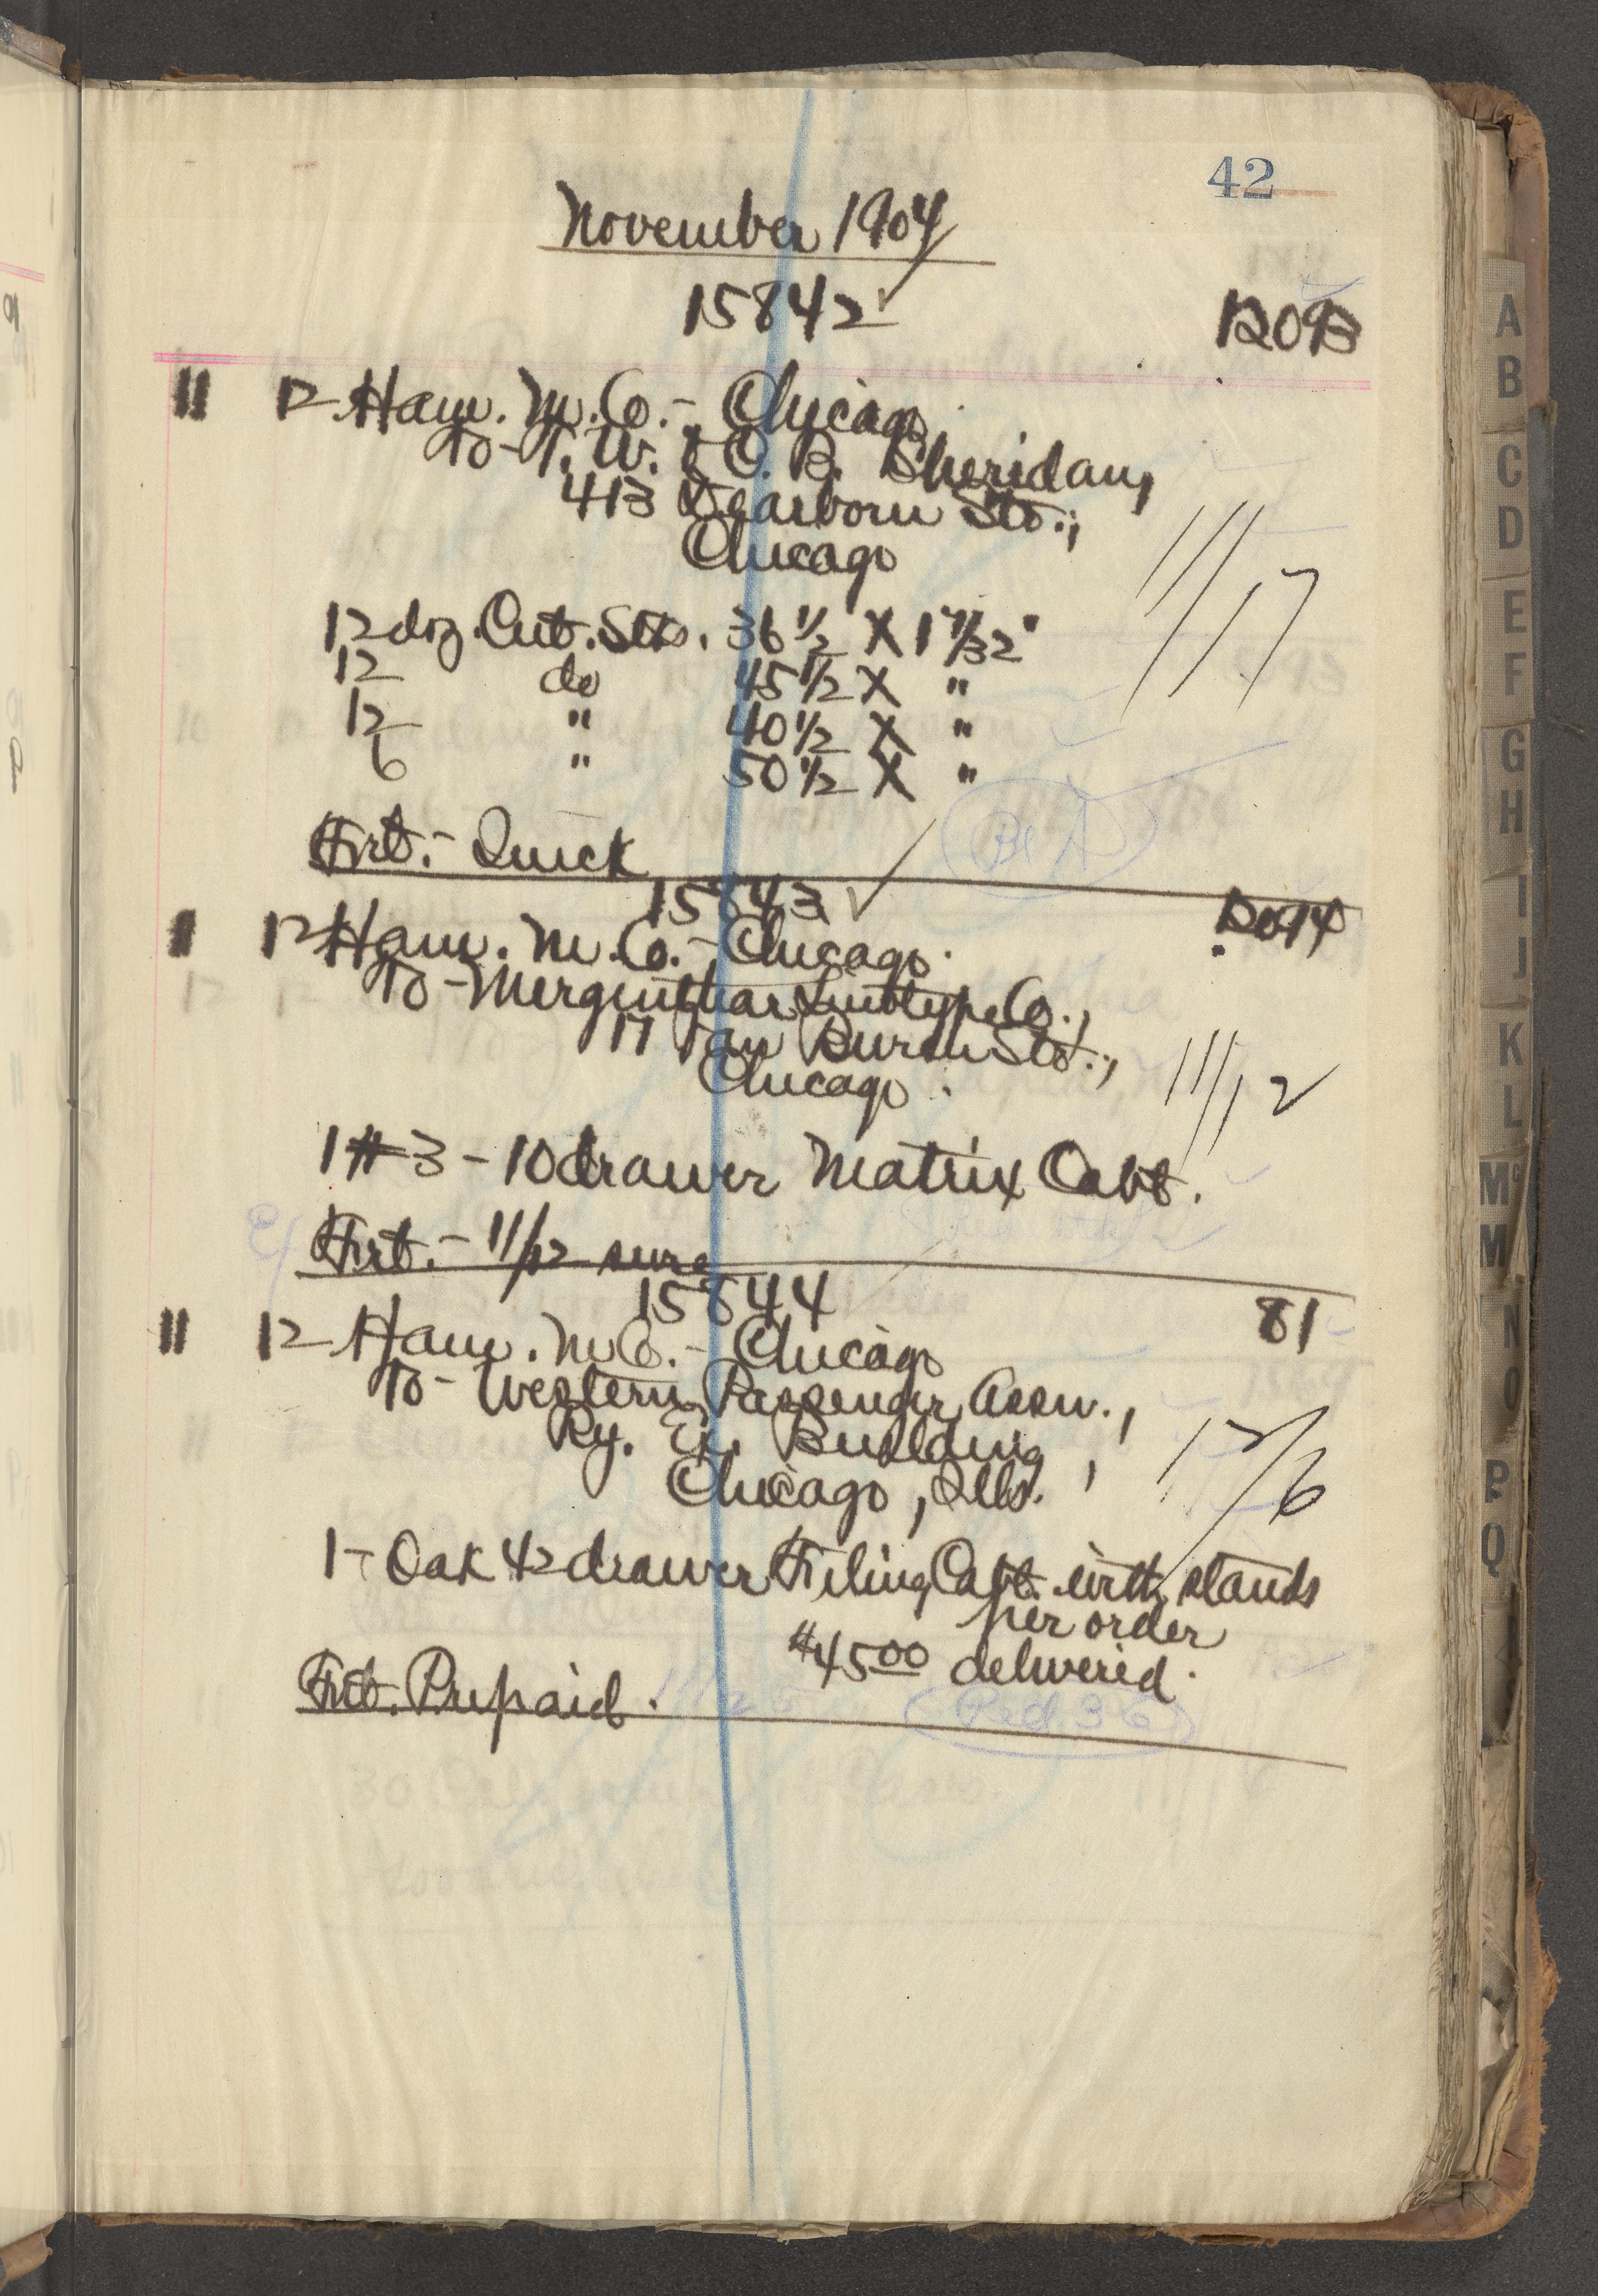 42
November 1904
15842 ✓ 12093
11 12 Ham. M. Co. - Chicago.
To - T. W. & C. B. Sheridan,
413 Dearborn Str.,
Chicago
11/17
12 doz. Cut. Stks. 36 1/2 X 1 7/32"
12 do 45 1/2 X "
12 " 40 1/2 X "
6 " 50 1/2 X "
Frt. - Quick
15843 ✓ 12094
11 12 Ham. M. Co. - Chicago.
To - Mergenthaler Linotype Co.,
17 Van Buren Str.,
Chicago.
11/12
1 # 3 - 10 drawer Matrix Cabt.
Frt. - 11/12 sure
15844 81
11 12 Ham. M Co. - Chicago
To - Western Passenger Assn.,
Ry. Ex. Building,
Chicago, Ills.
12/6
1 - Oak 42 drawer Filing Cabt. with stands
per order
$45 00 delivered.
Frt. Prepaid.
A
B
C
D
E
F
G
H
I
J
K
L
Mc
M
N
O
P
Q